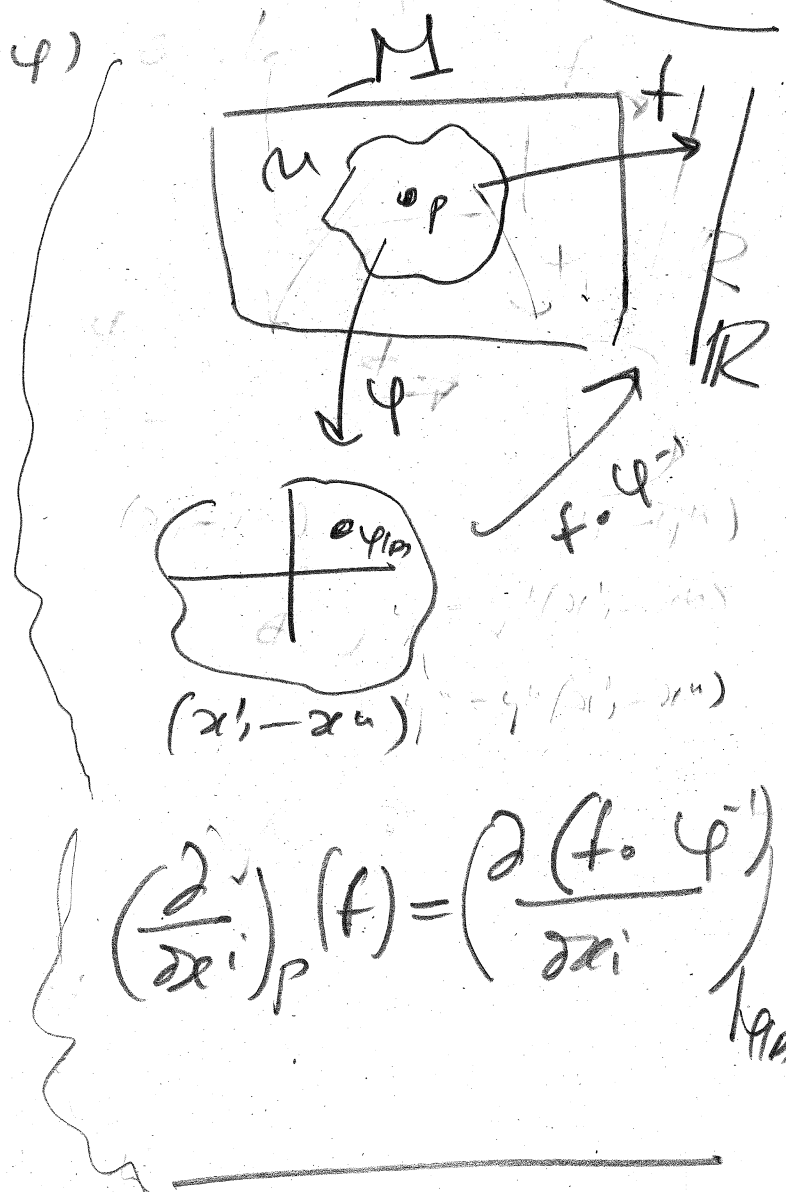 φ)
M
f
U
p
ℝ
φ
f∘φ⁻¹
φ(p)
(x¹, – xⁿ)
(∂/∂xⁱ)_p (f) = (∂(f∘φ⁻¹)/∂xⁱ)|_φ(p)